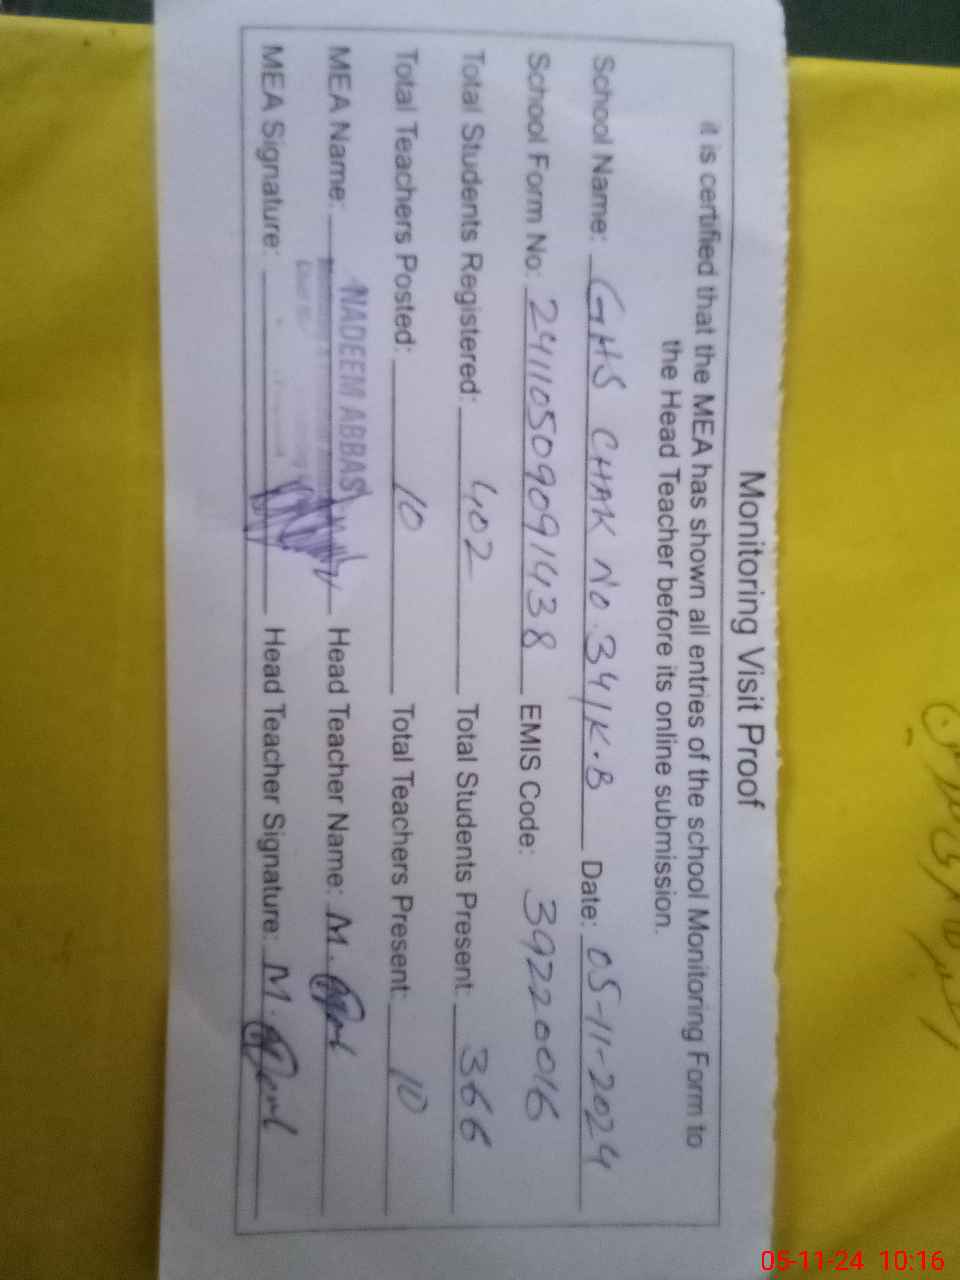 Monitoring Visit Proof
it is certified that the MEA has shown all entries of the school Monitoring Form to
the Head Teacher before its online submission.
School Name: GHS CHAK NO. 341K.B Date: 05-11-2024
School Form No: 2411050909091438 EMIS Code: 39220016
Total Students Registered: 402 Total Students Present: 366
Total Teachers Posted: 10 Total Teachers Present: 10
MEA Name: NADEEM ABBAS Head Teacher Name: M.
MEA Signature: Head Teacher Signature: M.
05-11-24 10:16